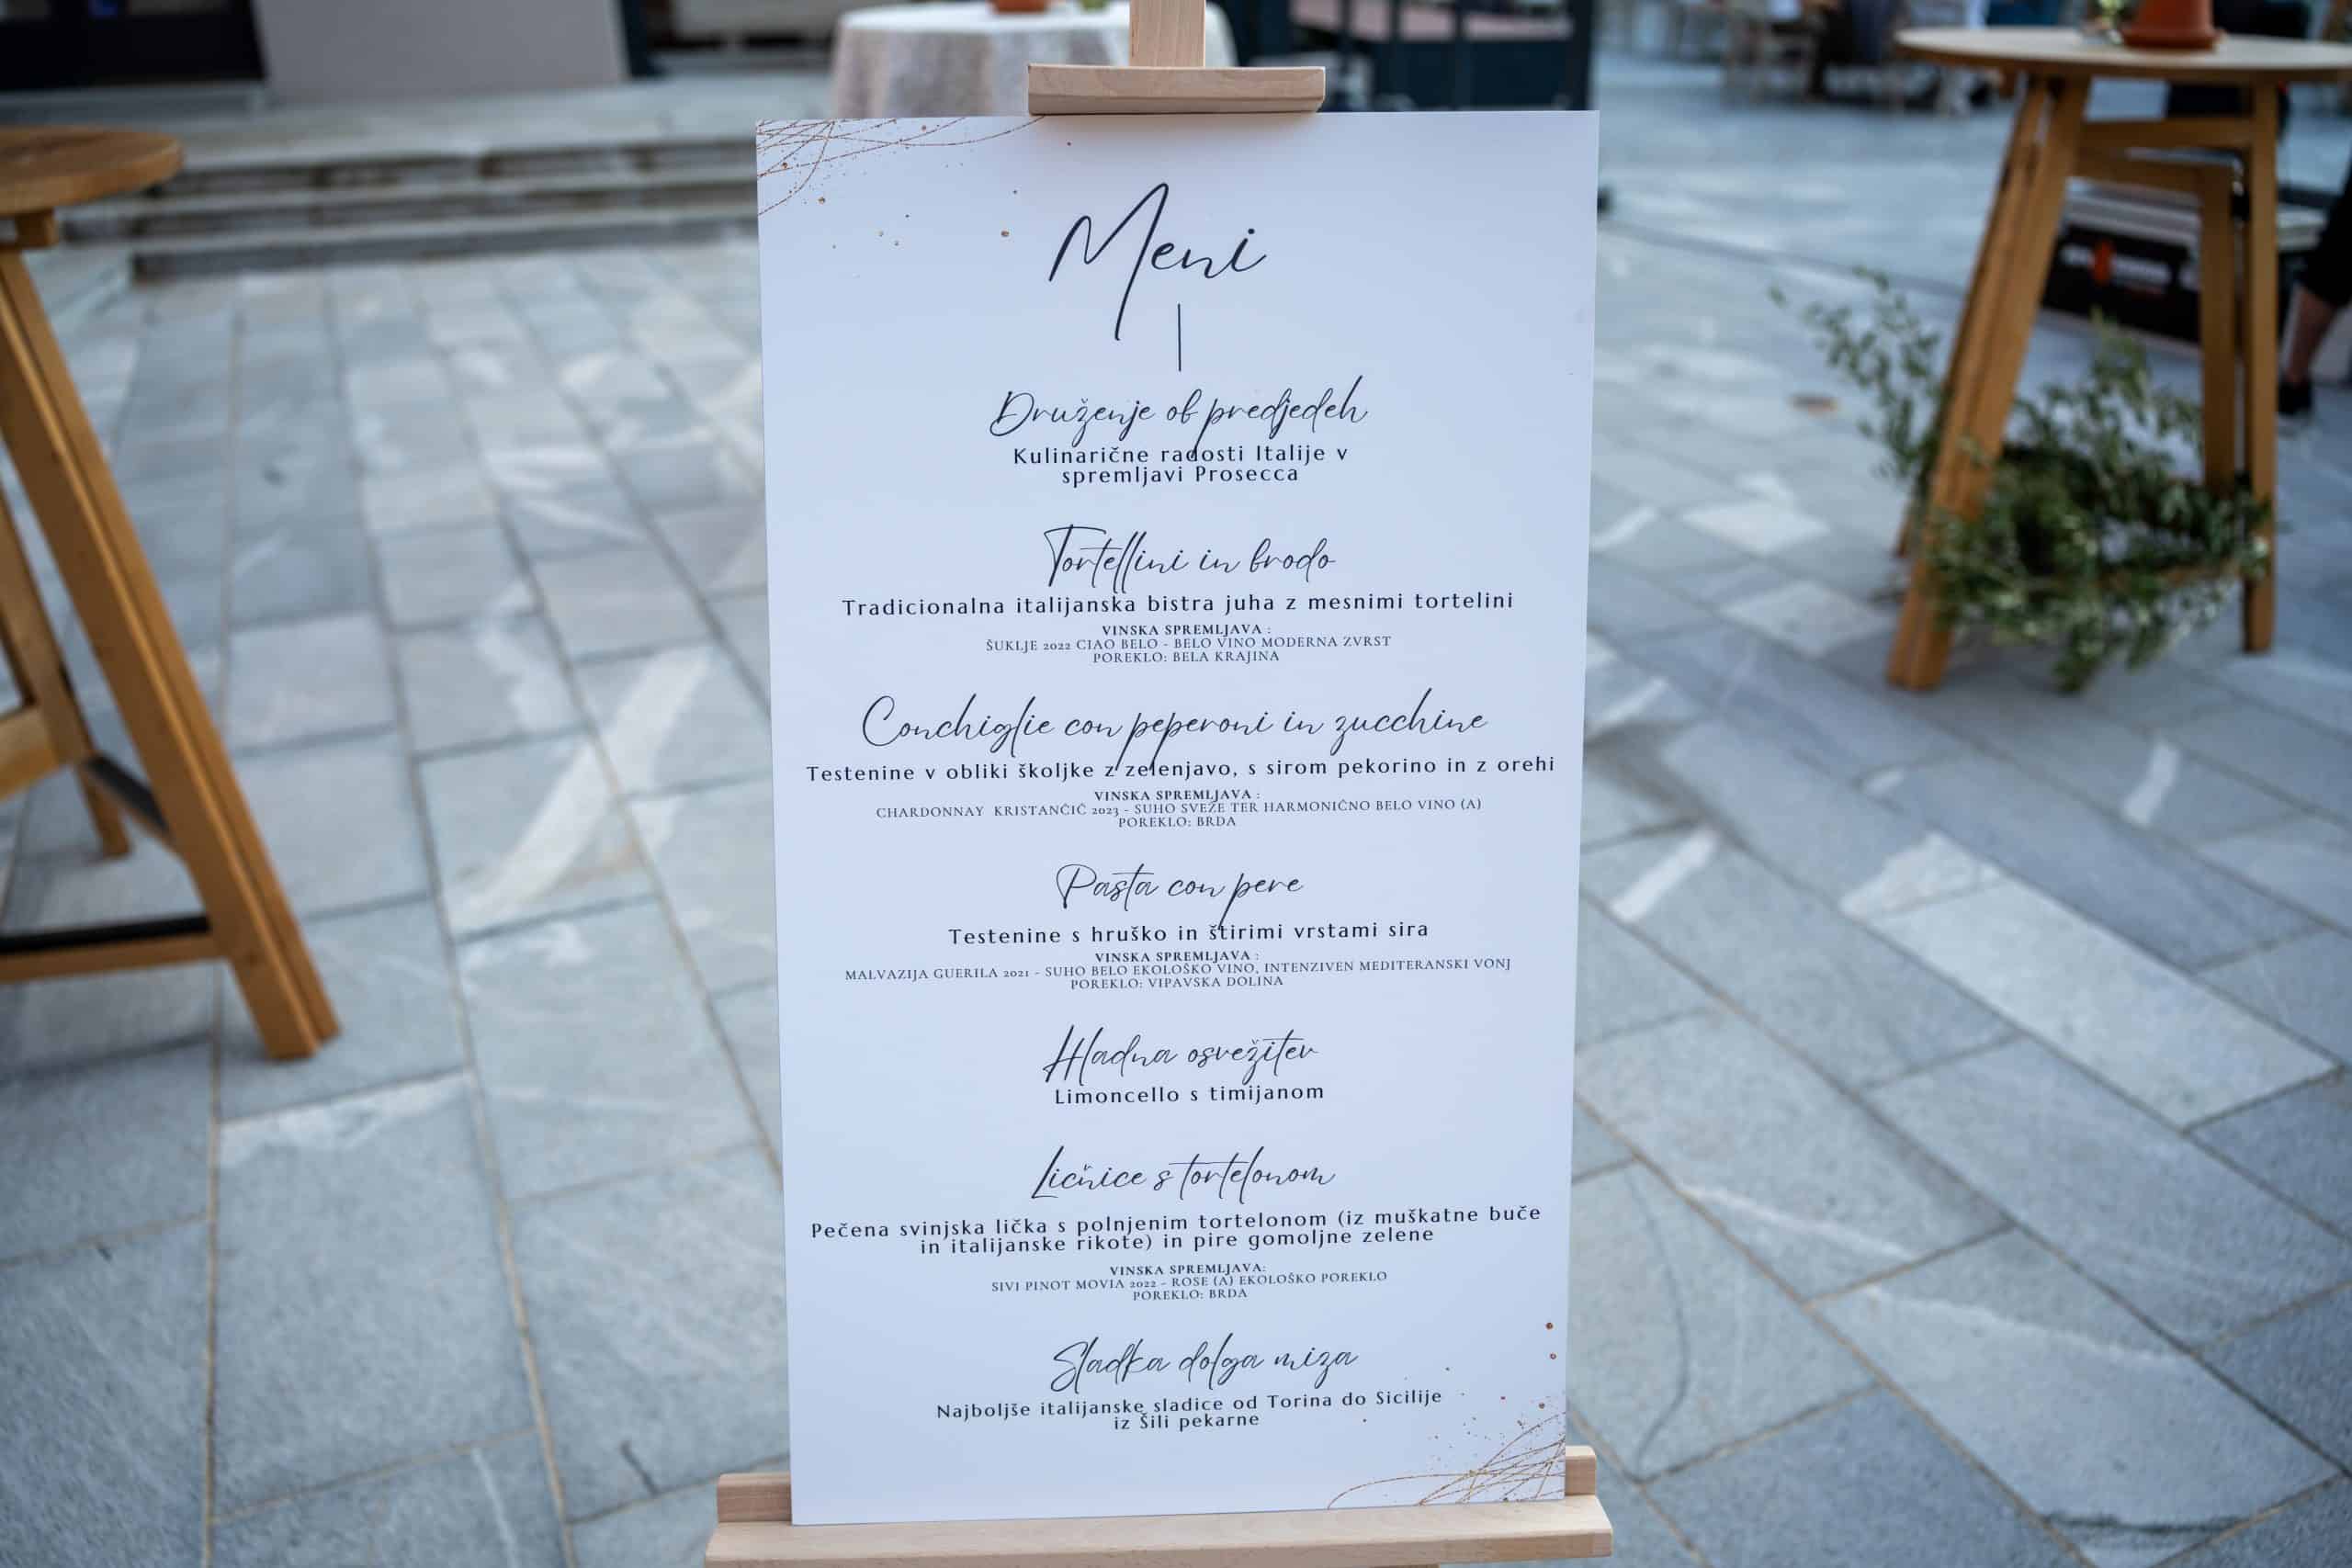 Meni
Druženje ob predjedeh
Kulinarične radosti Italije v
spremljavi Prosecca
Tortellini in brodo
Tradicionalna italijanska bistra juha z mesnimi tortelini
VINSKA SPREMLJAVA :
ŠUKLJE 2022 CIAO BELO - BELO VINO MODERNA ZVRST
POREKLO: BELA KRAJINA
Conchiglie con peperoni in zucchine
Testenine v obliki školjke z zelenjavo, s sirom pekorino in z orehi
VINSKA SPREMLJAVA :
CHARDONNAY KRISTANČIČ 2023 - SUHO SVEŽE TER HARMONIČNO BELO VINO (A)
POREKLO: BRDA
Pasta con pere
Testenine s hruško in štirimi vrstami sira
VINSKA SPREMLJAVA :
MALVAZIJA GUERILA 2021 - SUHO BELO EKOLOŠKO VINO, INTENZIVEN MEDITERANSKI VONJ
POREKLO: VIPAVSKA DOLINA
Hladna osvežitev
Limoncello s timijanom
Ličnice s tortelonom
Pečena svinjska lička s polnjenim tortelonom (iz muškatne buče
in italijanske rikote) in pire gomoljne zelene
VINSKA SPREMLJAVA:
SIVI PINOT MOVIA 2022 - ROSE (A) EKOLOŠKO POREKLO
POREKLO: BRDA
Sladka dolga miza
Najboljše italijanske sladice od Torina do Sicilije
iz Šili pekarne